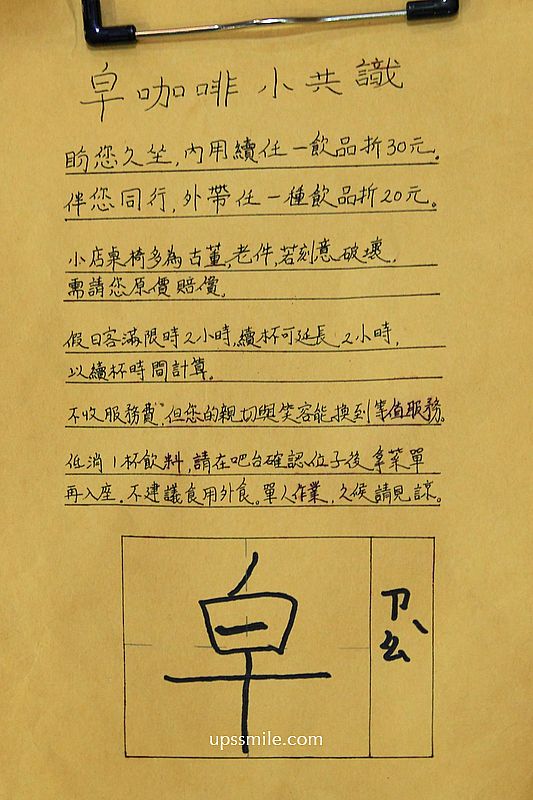 皁咖啡小共識
盼您久坐,內用續任一飲品折30元。
伴您同行,外帶任一種飲品折20元。
小店桌椅多為古董,老件,若刻意破壞,
需請您原價賠償。
假日客滿限時2小時,續杯可延長2小時,
以續杯時間計算。
不收服務費,但您的親切與笑容能換到等值服務。
低消1杯飲料,請在吧台確認位子後拿菜單
再入座。不建議食用外食。單人作業,久候請見諒。
皁
ㄗㄠˋ
upssmile.com